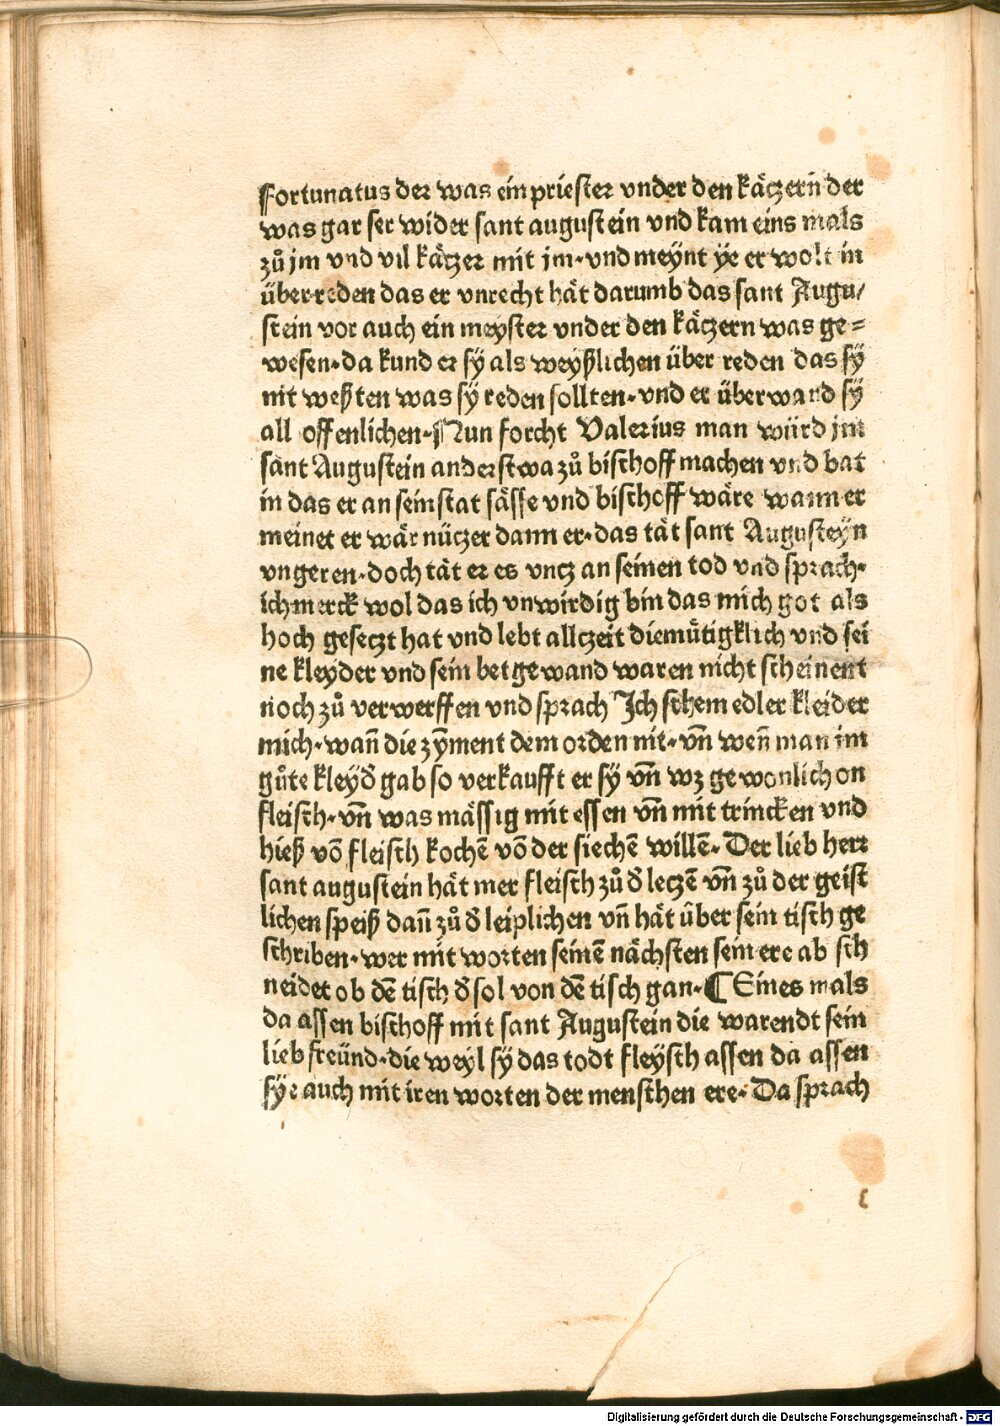 Fortunatus der was ein priester vnder den kätzern der
was gar ser wider sant augustein vnd kam eins mals
zů jm vnd vil kätzer mit jm·vnd meynt ye er wolt in
über reden das er vnrecht hät darumb das sant Augu/
stein vor auch ein meyster vnder den kätzern was ge=
wesen·da kund er sÿ als weyßlichen über reden das sÿ
nit weßten was sÿ reden sollten·vnd er überwand sÿ
all offenlichen·Nun forcht Valerius man würd jm
sant Augustein anderstwa zů bischoff machen vnd bat
in das er an sein stat sässe vnd bischoff wäre wann er
meinet er wär nüczer dann er·das tät sant Augusteyn
vngeren·doch tät er es vncz an seinen tod vnd sprach·
ich merck wol das ich vnwirdig bin das mich got als
hoch geseczt hat vnd lebt allczeit diemütigklich vnd sei
ne kleyder vnd sein bet gewand waren nicht scheinent
noch zů verwerffen vnd sprach Ich schem edler kleider
mich·wañ die zÿment dem orden nit·vñ weñ man im
gůte kleyď gab so verkaufft er sÿ vñ wz gewonlich on
fleisch·vñ was mässig mit essen vñ mit trincken vnd
hieß võ fleisch kochẽ võ der siechẽ willẽ·Der lieb herr
sant augustein hät mer fleisch zů ď leczẽ vñ zů der geist
lichen speiß dañ zů ď leiplichen vñ hät über sein tisch ge
schriben·wer mit worten seinẽ nächsten sein ere ab sch
neidet ob dẽ tisch ď sol von dẽ tisch gan·¶ Eines mals
da assen bischoff mit sant Augustein die warendt sein
lieb freünd·die weyl sÿ das todt fleysch assen da assen
sÿe auch mit iren worten der menschen ere· Da sprach
Digitalisierung gefördert durch die Deutsche Forschungsgemeinschaft - DFG